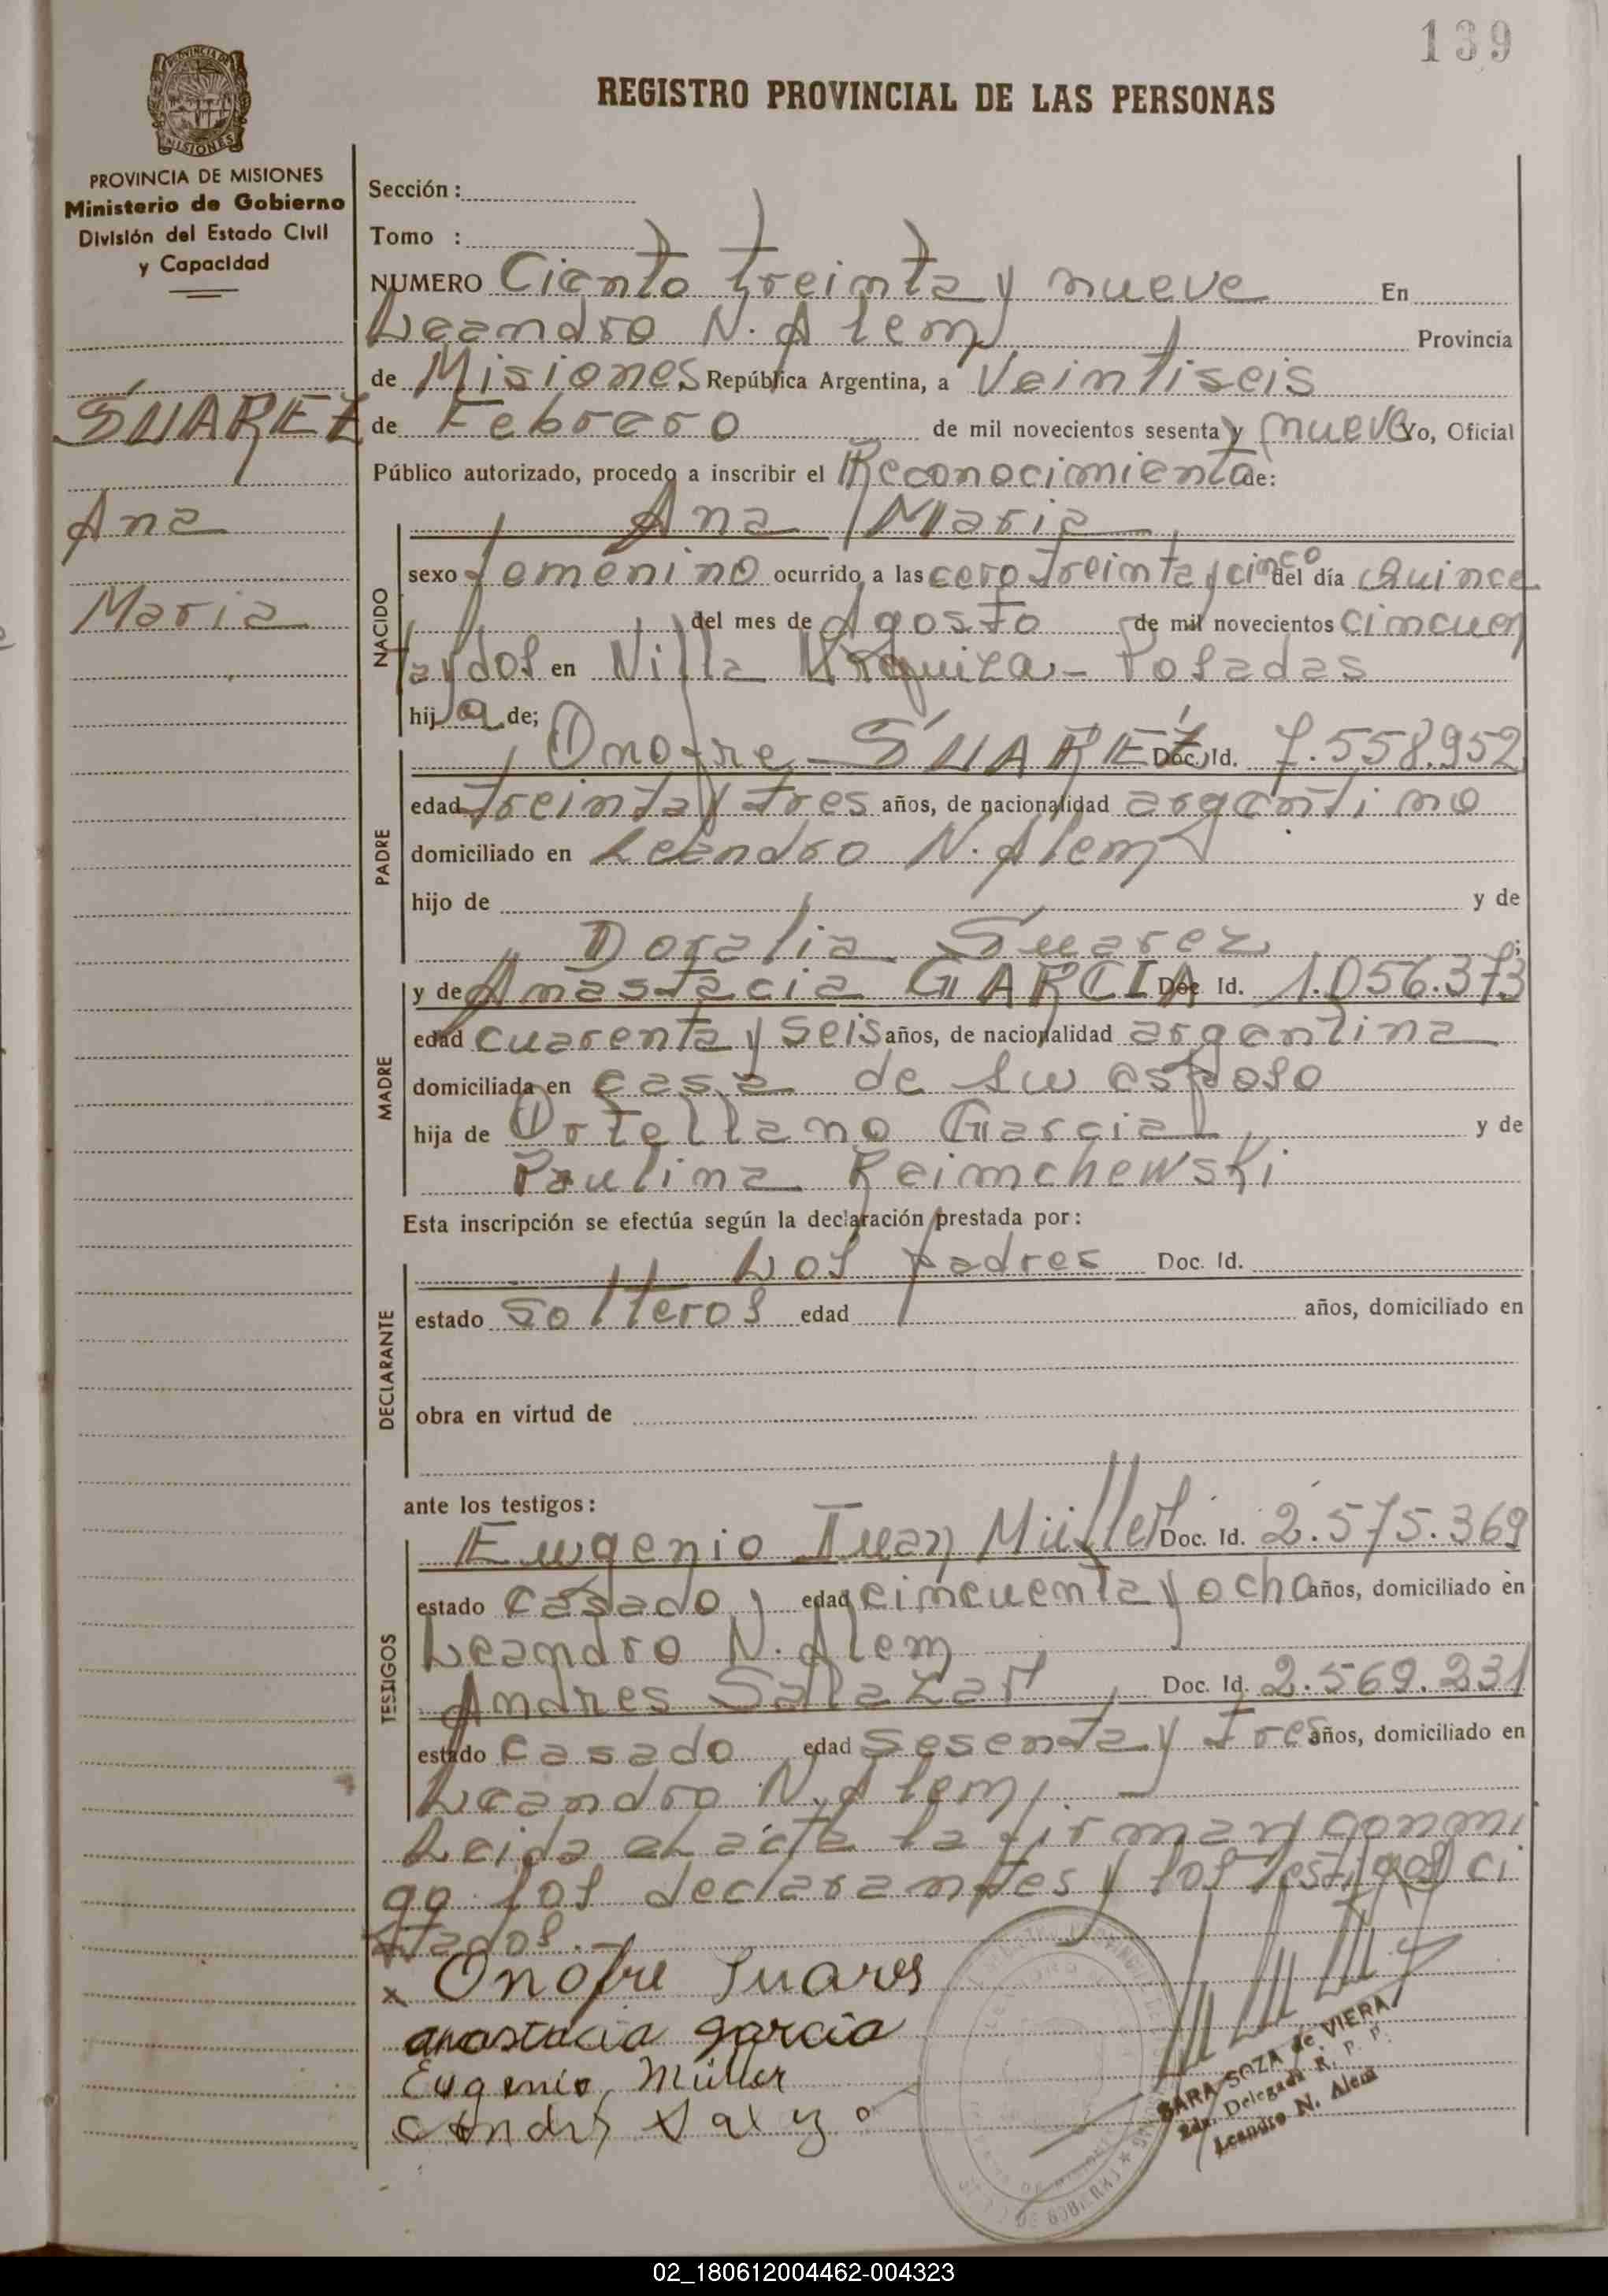 139
REGISTRO PROVINCIAL DE LAS PERSONAS
PROVINCIA DE MISIONES
Ministerio de Gobierno
División del Estado Civil
y Capacidad
SUAREZ
Ana
Maria
Sección :
Tomo :
NUMERO Ciento treinta y nueve En
Leandro N. Alem Provincia
de Misiones República Argentina, a Veintiseis
de Febrero de mil novecientos sesenta y nueve Yo, Oficial
Público autorizado, procedo a inscribir el Reconocimiento de:
NACIDO
Ana Maria
sexo femenino ocurrido a las cero treinta y cinco del día Quince
del mes de Agosto de mil novecientos cincuen
ta y dos en Villa Urquiza - Posadas
hij a de;
PADRE
Onofre SUAREZ Doc. Id. 7.558.952
edad treinta y tres años, de nacionalidad argentino
domiciliado en Leandro N. Alem
hijo de y de
Doralia Suarez ;
MADRE
y de Anastacia GARCIA Doc. Id. 1.056.373
edad cuarenta y seis años, de nacionalidad argentina
domiciliada en casa de su esposo
hija de Ortellano Garcia y de
Paulina Reimchewski
Esta inscripción se efectúa según la declaración prestada por:
DECLARANTE
Los padres Doc. Id.
estado solteros edad años, domiciliado en
obra en virtud de
ante los testigos:
TESTIGOS
Eugenio Juan Müller Doc. Id. 2.575.369
estado casado edad cincuenta y ocho años, domiciliado en
Leandro N. Alem
Andres Salazar Doc. Id. 2.569.231
estado casado edad sesenta y tres años, domiciliado en
Leandro N. Alem. -
Leida el acta la firman conmi
go los declarantes y los testigos ci
tados. -
x Onofre Suares
anastacia garcia
Eugenio Müller
SARA SOZA de VIERA
Delegada R. P. P.
Leandro N. Alem
02_180612004462-004323